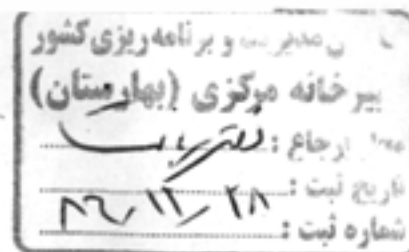 مدیریت و برنامه ریزی کشور
بیرخانه مرکزی (بهارستان)
ارجاع : دفتر
تاریخ ثبت :
۸۲/۱۲/۲۸
شماره ثبت :